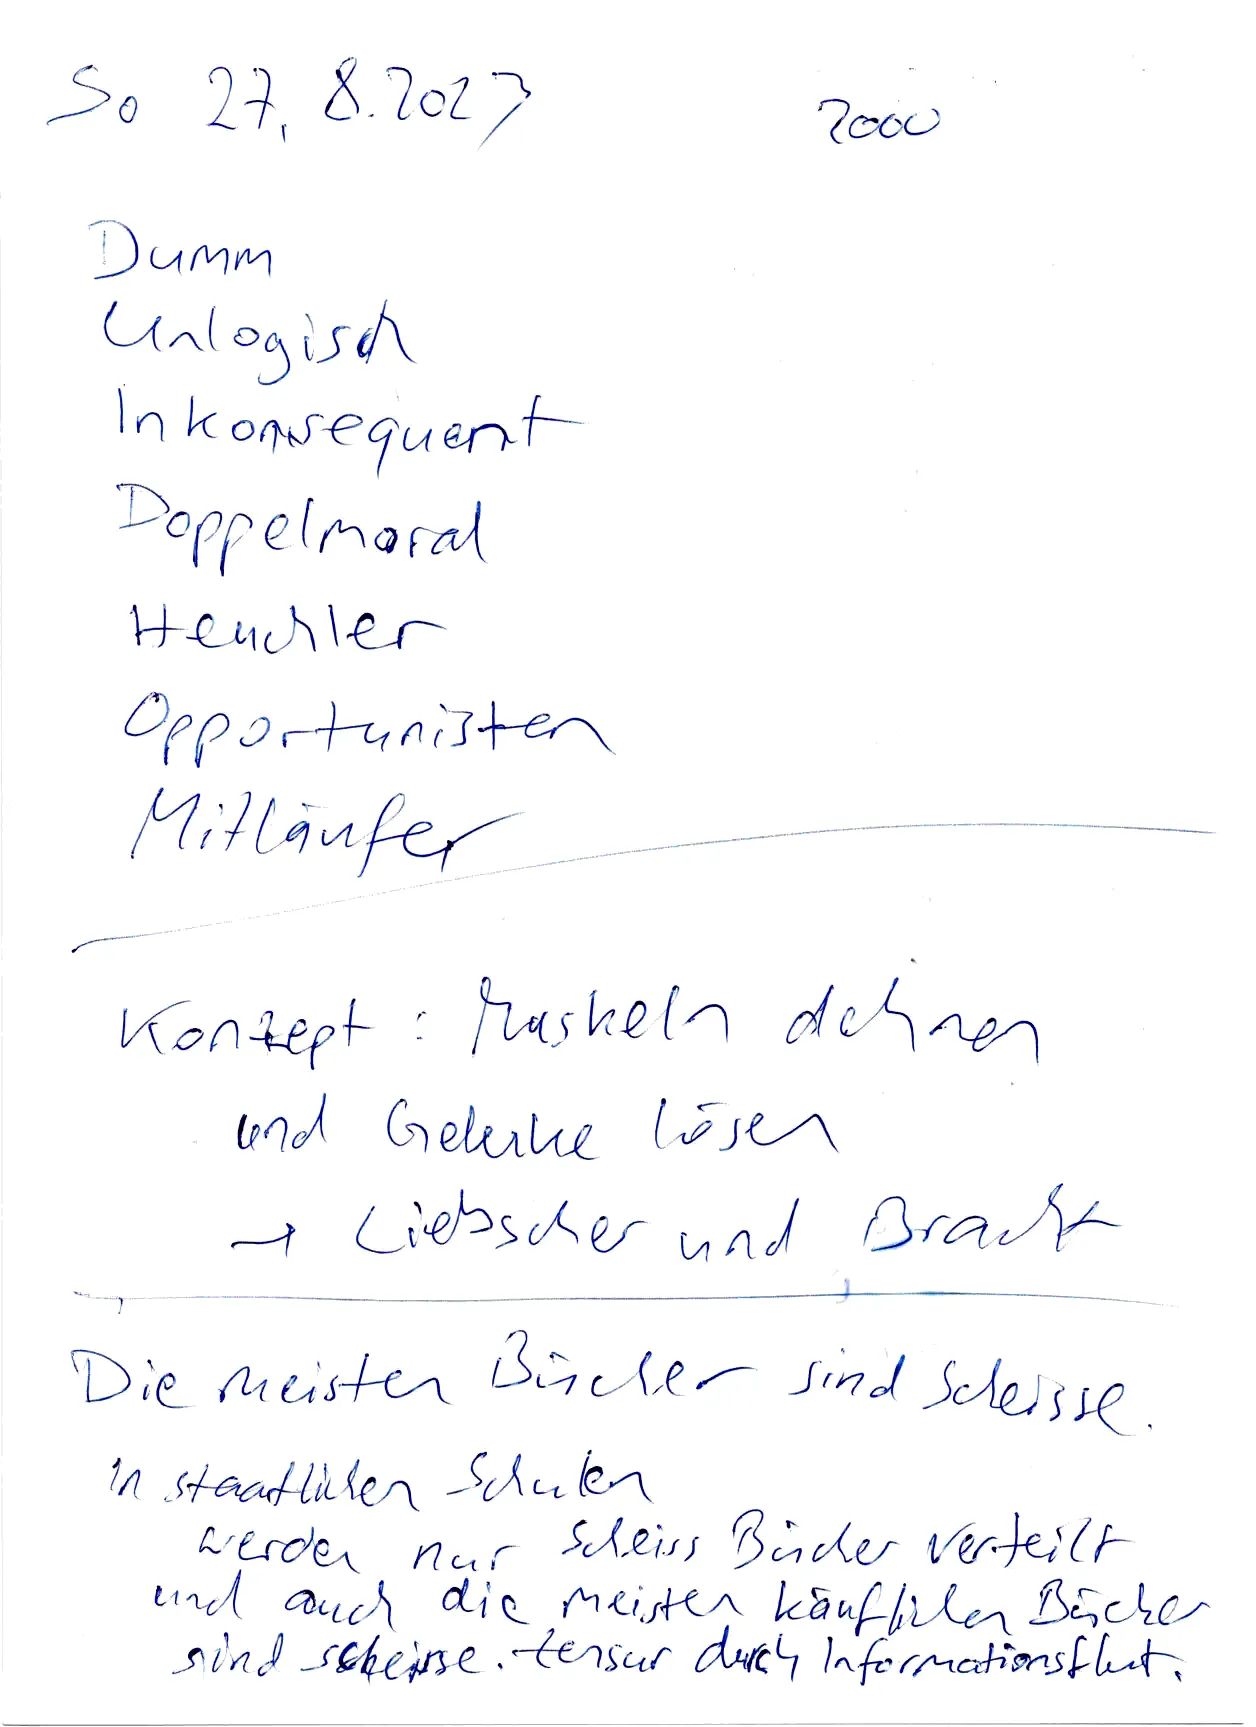 So 27. 8.2023 2000
Dumm
Unlogisch
Inkonsequent
Doppelmoral
Heuchler
Opportunisten
Mitläufer
Konzept : Muskeln dehnen
und Gelenke lösen
→ Liebscher und Bracht
Die meisten Bücher sind scheisse.
in staatlichen Schulen
werden nur scheiss Bücher verteilt
und auch die meisten käuflichen Bücher
sind scheisse. Zensur durch Informationsflut.